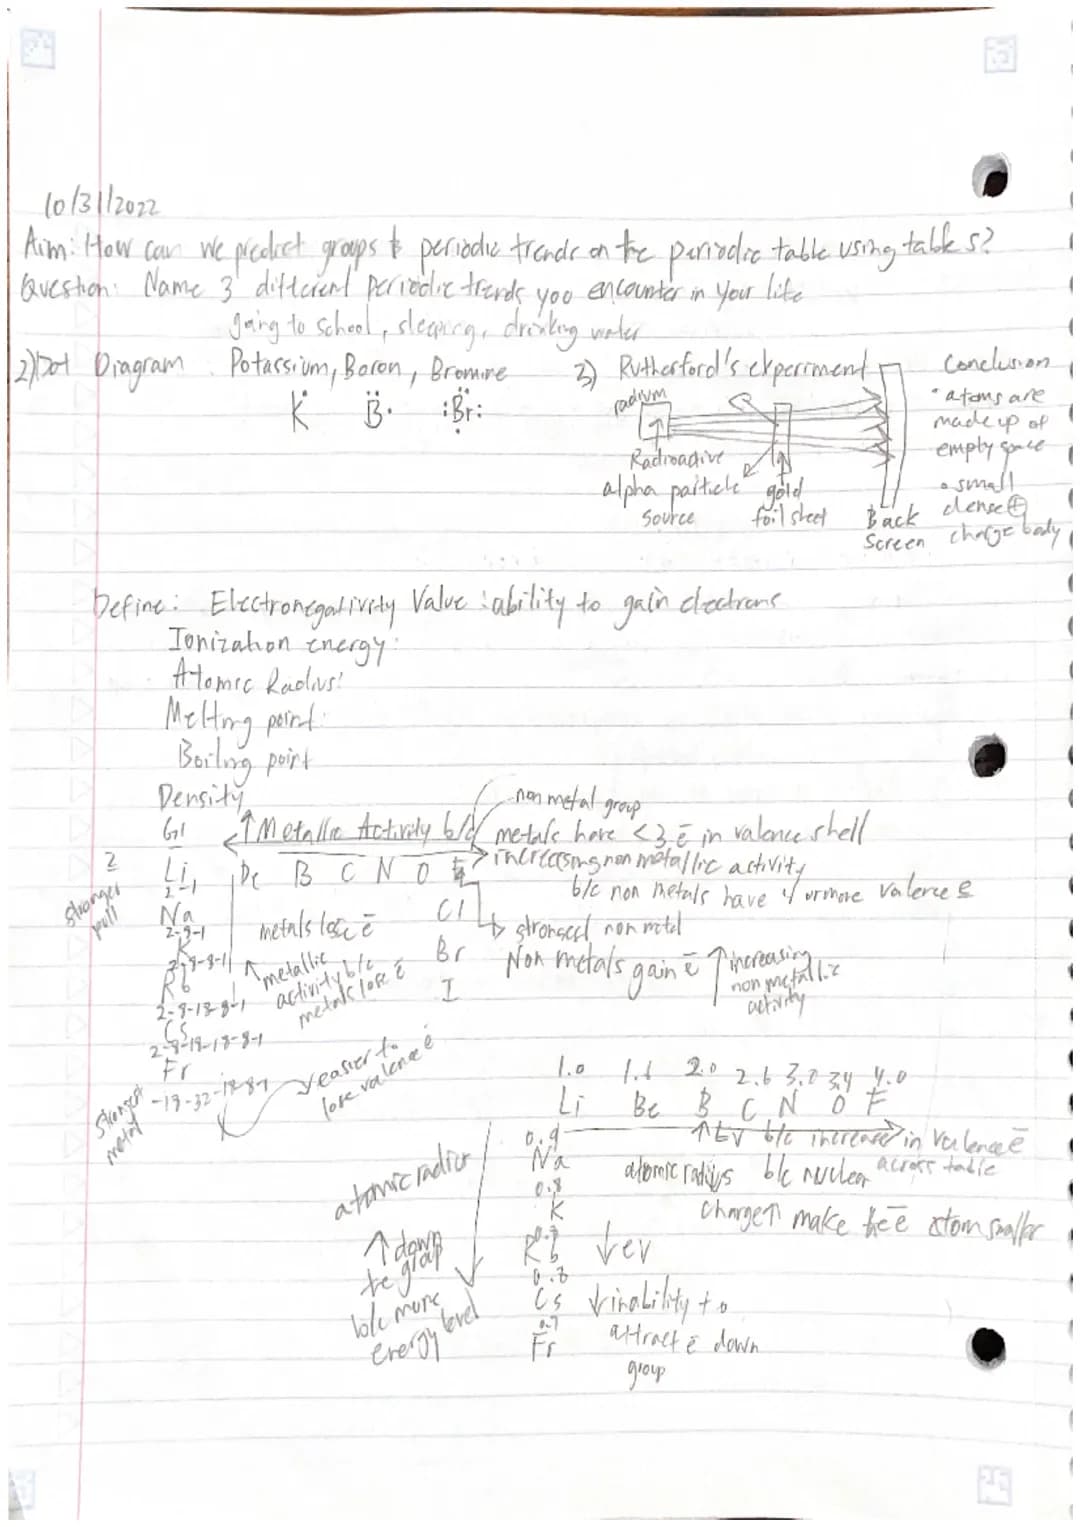 10/31/2022
Aim: How can we predict groups & periodic trends on the periodic table using table s?
Question: Name 3 different periodic trends you encounter in your life
going to school, sleeping, drinking water
2) Dot Diagram Potassium, Boron, Bromine
K B Br
3) Rutherford's experiment
radium
Radioactive
alpha particle
source
gold
foil sheet
Back
Screen
Conclusion
• atoms are
made up of
empty space
• small
dense ⊕
charge body
Define: Electronegativity Value: ability to gain electrons
Ionization energy:
Atomic Radius:
Melting point:
Boiling point
Density
G1
↑ Metallic Activity b/c metals have <3 ē in valence shell
non metal group
Li Be B C N O F
2-1
increasing non metallic activity
b/c non metals have 4 or more valence ē
2
stronger
pull
Na
2-8-1
K
2-8-8-1
Rb
2-8-18-8-1
Cs
2-8-18-18-8-1
Fr
-18-32-18-8-1
strongest
metal
metals lose ē
↑ metallic
activity b/c
metals lose ē
easier to
lose valence ē
Cl
Br
I
strongest non metal
Non metals gain ē
↑ increasing
non metallic
activity
1.0 1.6 2.0 2.6 3.0 3.4 4.0
Li Be B C N O F
↑ EV b/c increase in valence ē
across table
0.9
Na
atomic radius b/c nuclear
0.8
K
charge ↑ make the ē atom smaller
Rb
↓ ev
0.8
Cs
↓ inability to
0.7
attract ē down
Fr
group
atomic radius
↑ down
the group
b/c more
energy level